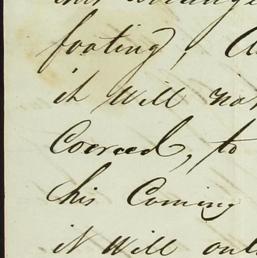 footing,
it will not
Coerced, to
his Coming
it will